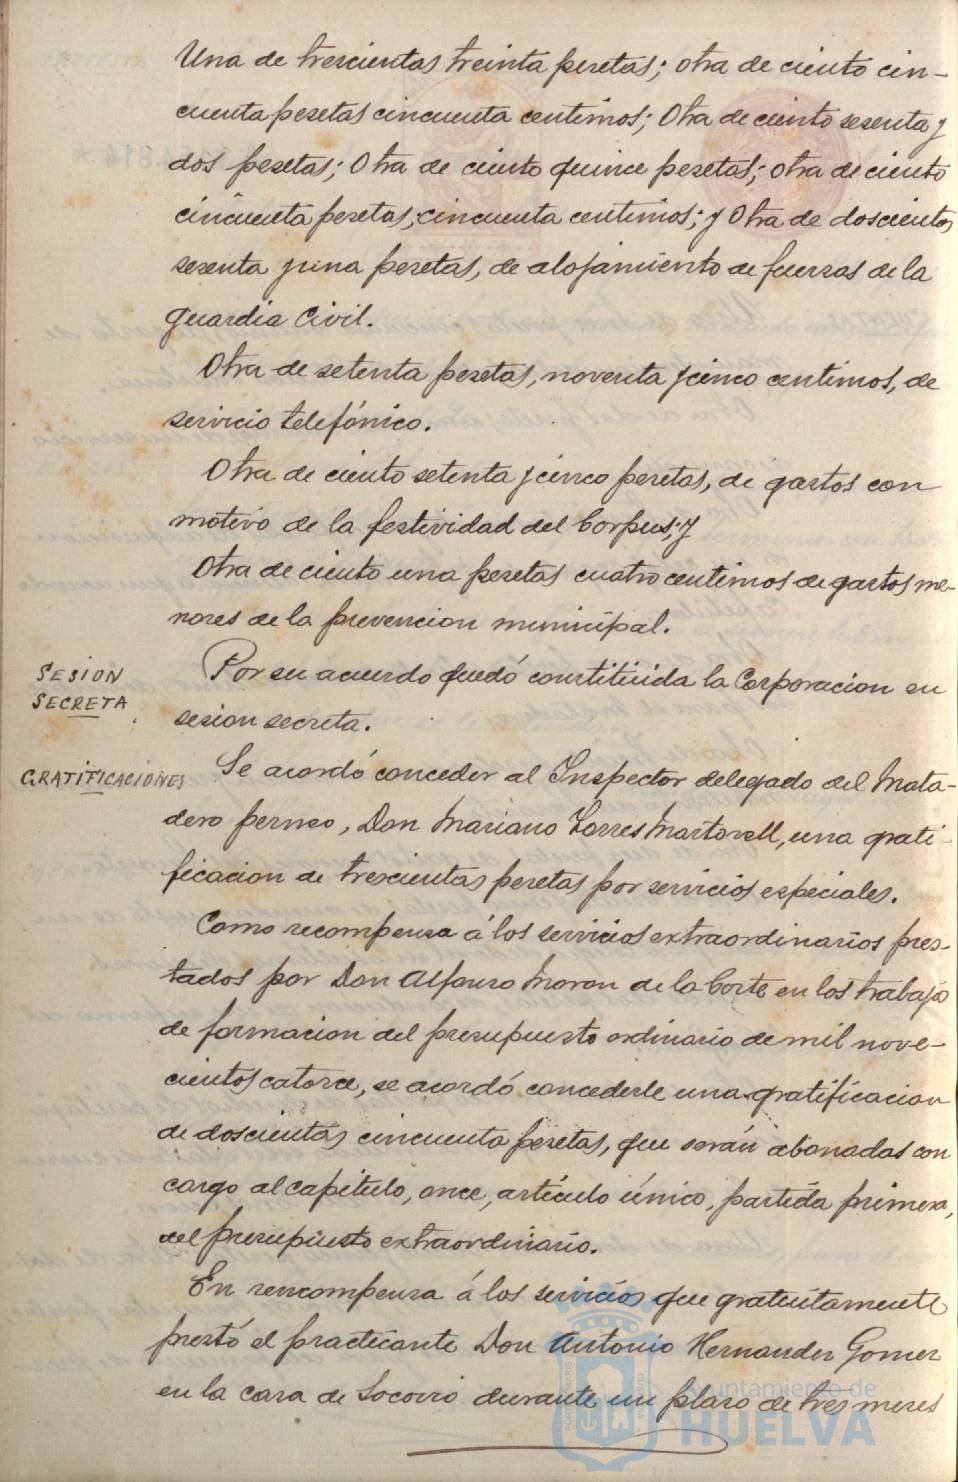 Una de trescientas treinta pesetas; otra de ciento cin-
cuenta pesetas cincuenta centimos; Otra de ciento sesenta y
dos pesetas; Otra de ciento quince pesetas; otra de ciento
cincuenta pesetas, cincuenta centimos; y Otra de doscientos
sesenta y una pesetas, de alojamiento de fuerzas de la
guardia Civil.
Otra de setenta pesetas, noventa y cinco centimos, de
servicio telefónico.
Otra de ciento setenta y cinco pesetas, de gastos con
motivo de la festividad del Corpus; y
Otra de ciento una pesetas cuatro centimos de gastos me-
nores de la prevencion municipal.
SESION
SECRETA
Por su acuerdo quedó constituida la Corporacion en
sesion secreta.
GRATIFICACIONES
Se acordó conceder al Inspector delegado del Mata-
dero perneo, Don Mariano Torres Martorell, una grati-
ficacion de trescientas pesetas por servicios especiales.
Como recompensa á los servicios extraordinarios pres-
tados por Don Alfonso Moron de la Corte en los trabajo
de formacion del presupuesto ordinario de mil nove-
cientos catorce, se acordó concederle una gratificacion
de doscientas cincuenta pesetas, que serán abonadas con
cargo al capitulo, once, artículo único, partida primera,
del presupuesto extraordinario.
En rencompensa á los servicios que gratuitamente
prestó el practicante Don Antonio Hernandez Gomez
en la casa de Socorro durante un plazo de tres meses
Ayuntamiento de
HUELVA